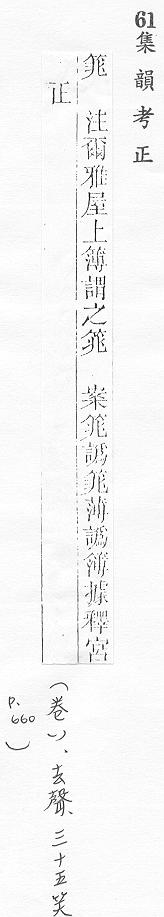 61集韻考正
筄 注爾雅屋上簿謂之筄 案筄譌筄薄譌簿據釋宮
正
(卷八、去聲、三十五笑
P.660)